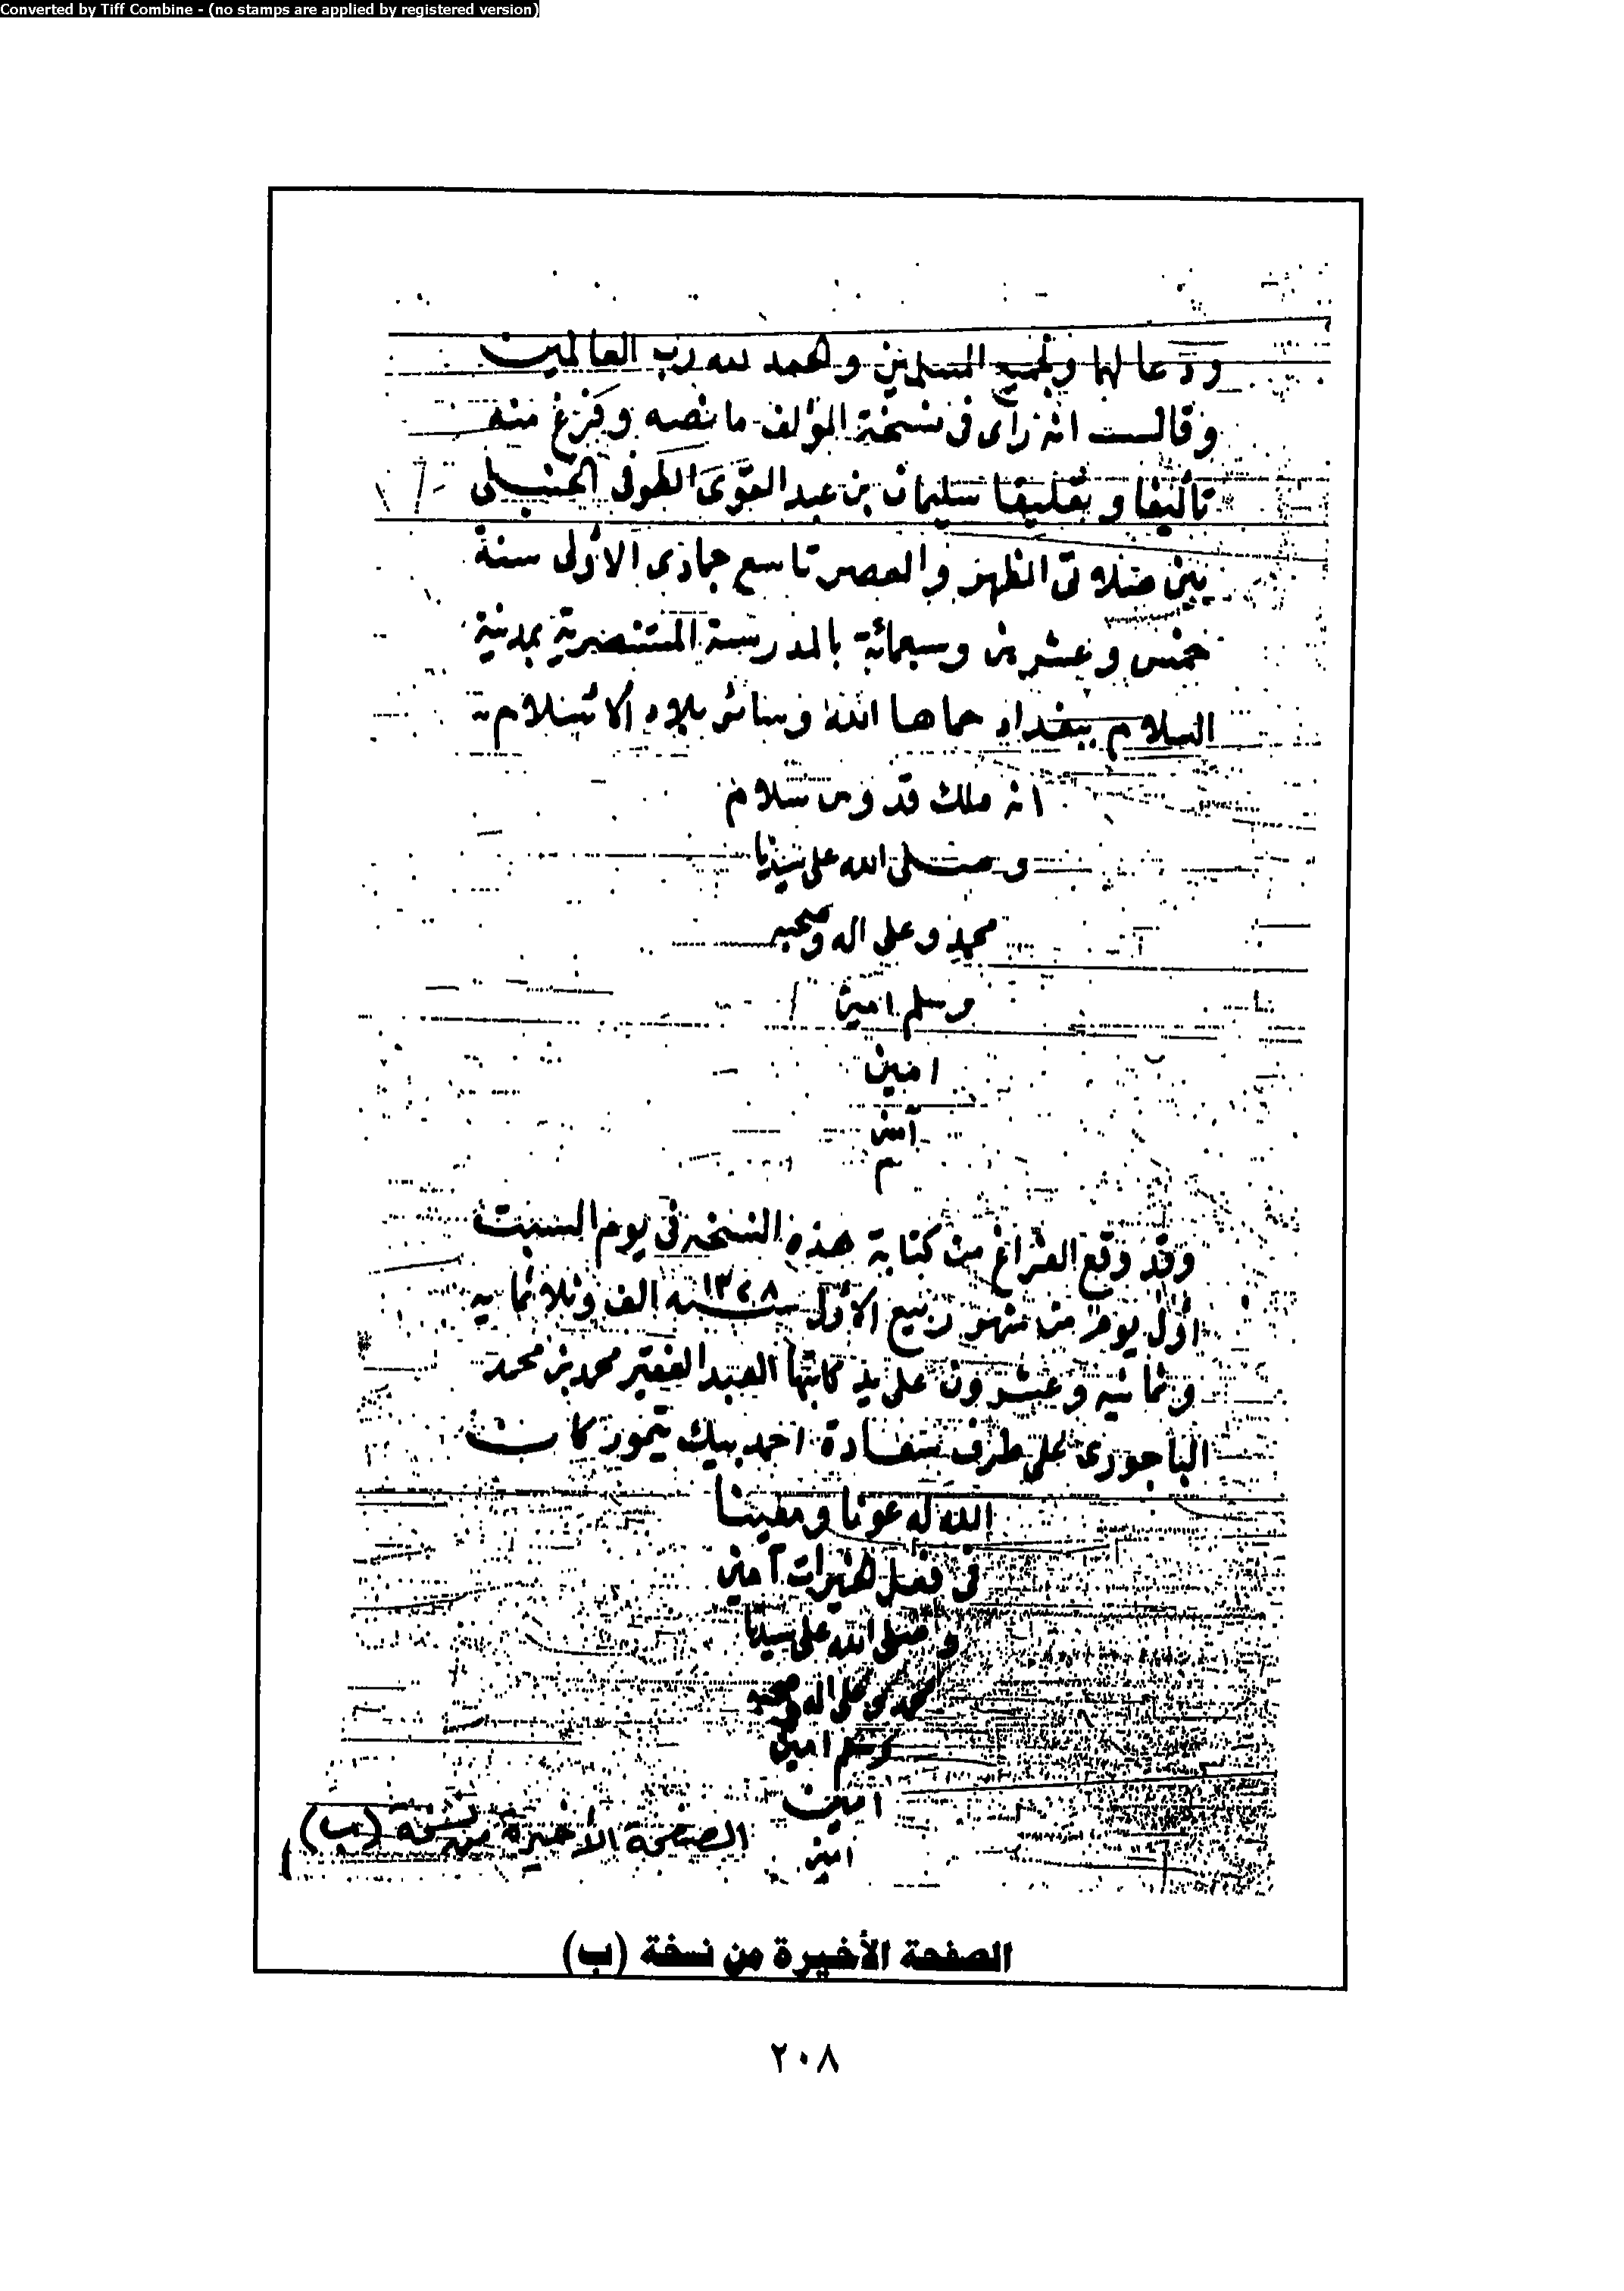 Converted by Tiff Combine - (no stamps are applied by registered version)
ودعا لها ولجميع المسلمين والحمد لله رب العالمين
وقالت انه رأى في نسخة المؤلف ما نصه وفرغ منه
تأليفا وتعليقا سليمان بن عبد القوى الطوفى الحنبلى
بين صلاتى الظهر والعصر تاسع جمادى الأولى سنة
خمس وعشرين وسبعمائة بالمدرسة المستنصرية بمدينة
السلام ببغداد حماها الله وسائر بلاد الاسلام
انه ملك قدوس سلام
وصلى الله على سيدنا
محمد وعلى اله وصحبه
وسلم امين
امين
آمين
م
وقد وقع الفراغ من كتابة هذه النسخة في يوم السبت
أول يوم من شهر ربيع الأول سنه ١٣٢٨ الف وثلاثمايه
وثمانيه وعشرون على يد كاتبها العبد الفقير محمد بن محمد
الباجورى على طرف سعادة احمد بيك تيمور كان
الله له عونا ومعينا
في فعل الخيرات آمين
وصلى الله على سيدنا
محمد وعلى اله وصحبه
وسلم امين
امين
امين
الصفحة الأخيرة من نسخة (ب)
الصفحة الأخيرة من نسخة (ب)
٢٠٨